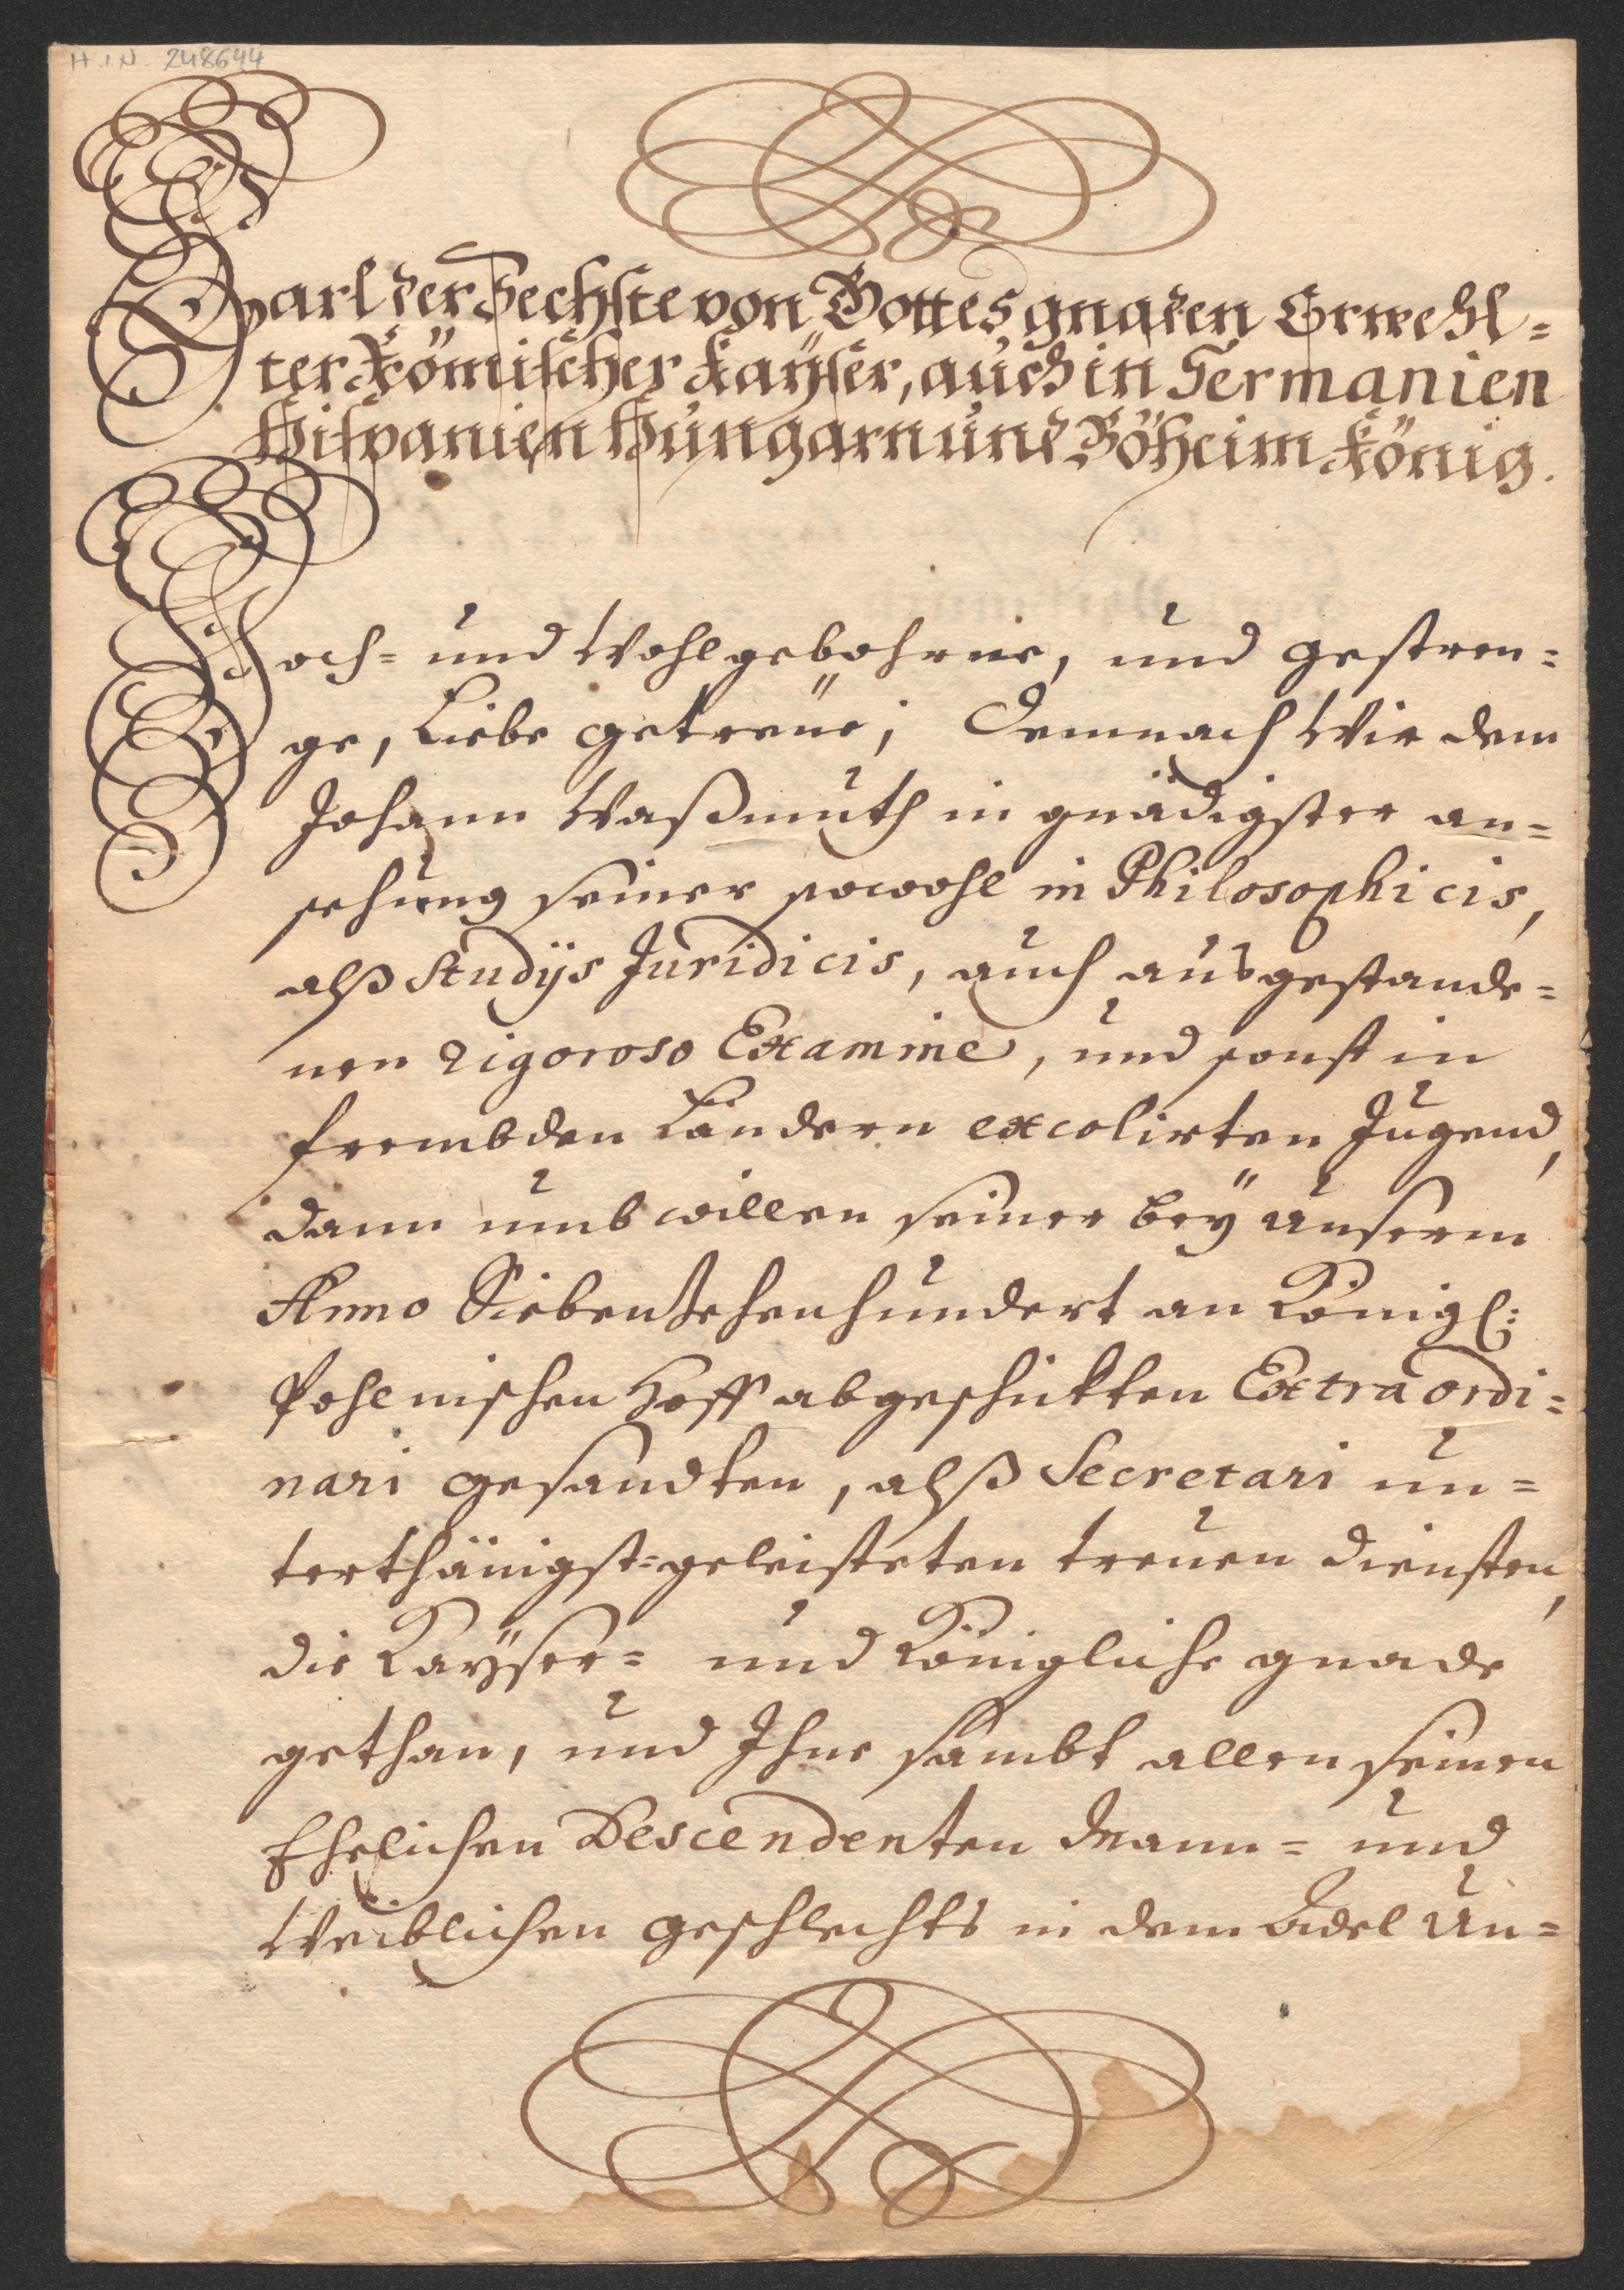 H.I.N. 248644
Carl der Sechste von Gottes gnaden Erwehl=
ter Römischer Kaÿser, auch in Germanien
Hispanien Hungarn und Böheim König.
Hoch= und Wohlgebohrne, und gestren=
ge, Liebe getreüe; Demnach Wir dem
Johann Waßmuth in gnädigster an=
sehung seiner sowohl in Philosophicis,
alß Studÿs Juridicis, auch ausgestande=
nen rigoroso Examine, und sonst in
frembden Ländern excolirten Jugend,
dann umb willen seiner beÿ Unserm
Anno Siebenzehenhundert an Königl:
Pohlnischen Hoff abgeschickten Extraordi=
nari gesandten, alß Secretari un=
terthänigst=geleisteten treuen diensten,
die Kaÿser= und Königliche gnade
gethan, und Ihne sambt allen seinen
Ehelichen Descendenten Mann= und
Weiblichen geschlechts in dem Adel Un=